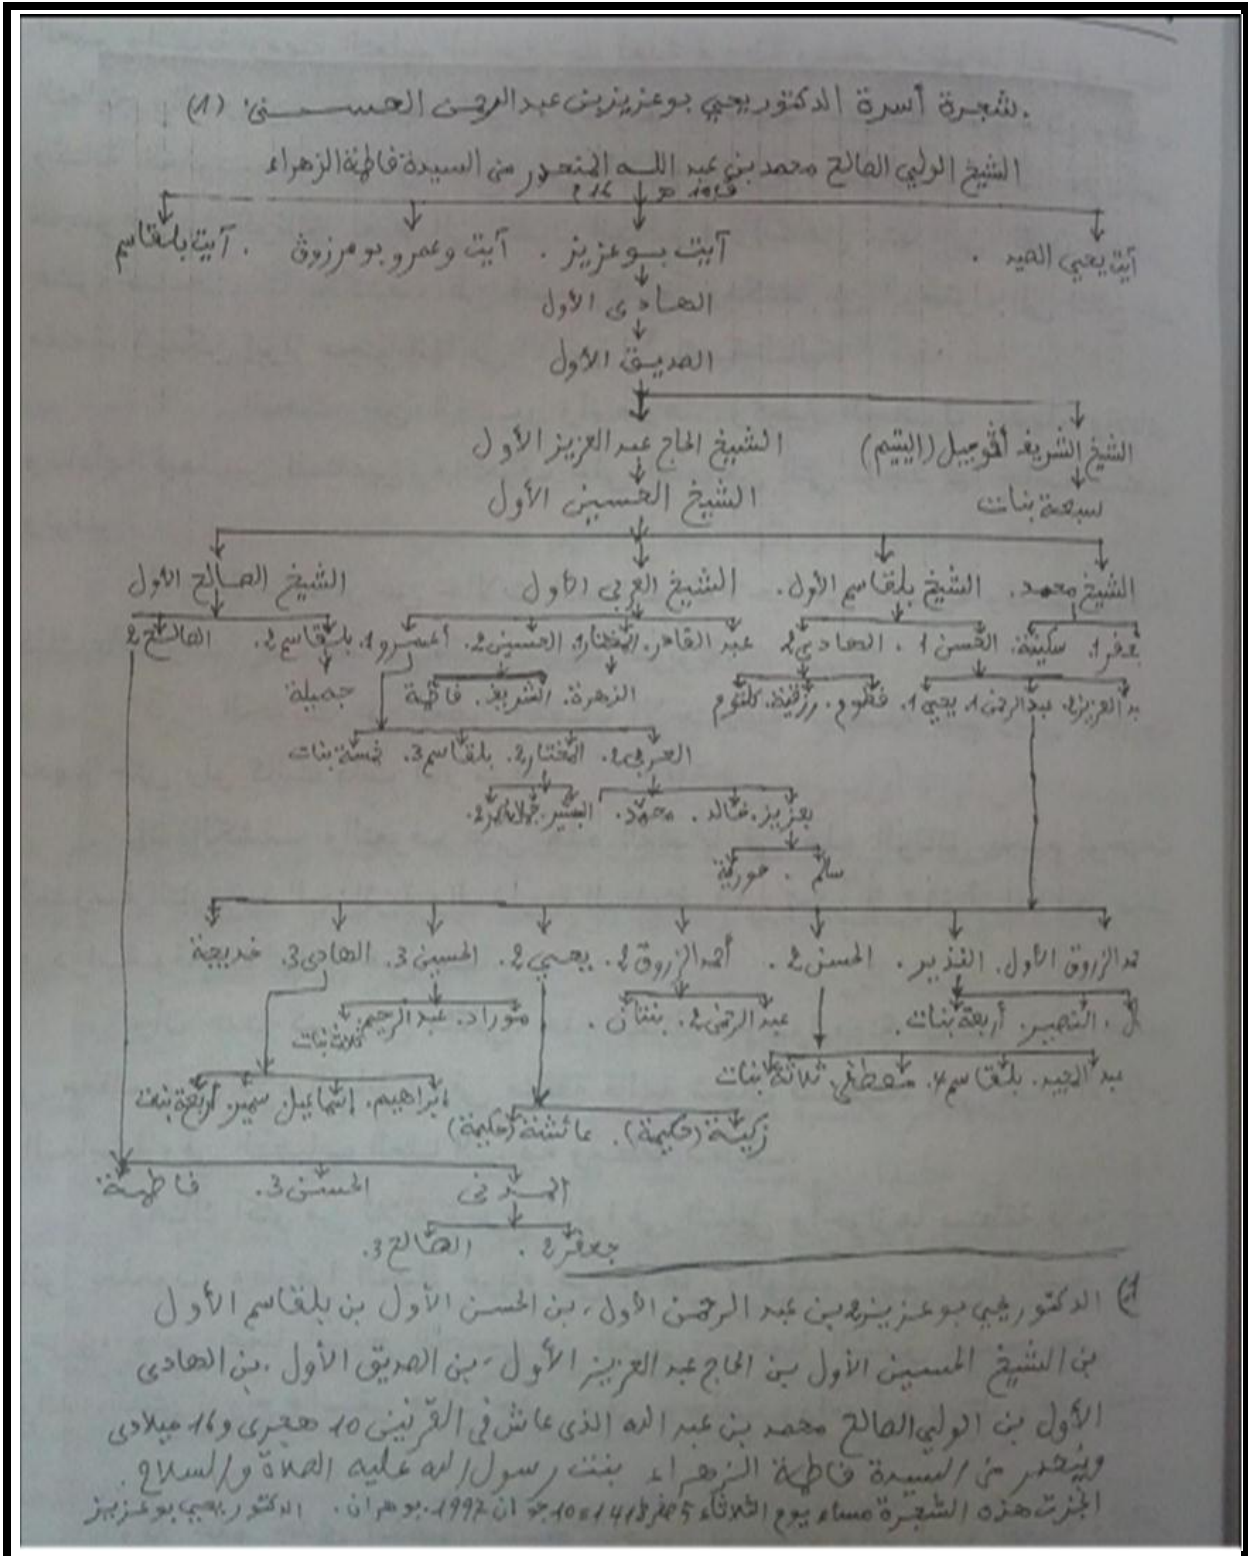 شجرة أسرة الدكتور يحيي بوعزيز بن عبد الرحمن الحسني (1)
الشيخ الولي الصالح محمد بن عبد الله المنحدر من السيدة فاطمة الزهراء
آيت يحيي العيد . آيت بوعزيز . آيت وعمرو بومرزوق . آيت بلقاسم
الهادي الأول
الصديق الأول
الشيخ الشريف أقوجيل (اليتيم) الشيخ الحاج عبد العزيز الأول
سبعة بنات الشيخ الحسين الأول
الشيخ محمد. الشيخ بلقاسم الأول. الشيخ العربي الأول الشيخ الصالح الأول
جعفر 1. سكينة. الحسن 1. الهادي 2 عبد القادر. المختار 1. الحسين 2. أعمرو 1. بلقاسم 2. الصالح 2
عبد العزيز 2. عبد الرحمن 1. يحيي 1. فطوم. رزقية. كلثوم الزهرة. الشريف. فاطمة جميلة
العربي 2. المختار 2. بلقاسم 3. خمسة بنات
بعزيز. خالد. محمد. البشير.
سالم . حورية
أحمد الزروق الأول. النذير. الحسن 2. أحمد الزروق 2. يحيي 2. الحسين 3. الهادي 3. خديجة
النصير. أربعة بنات. عبد الرحمن 2. بنتان. مراد. عبد الرحيم. ثلاث بنات
عبد المجيد. بلقاسم 4. مصطفى. ثلاثة بنات
إبراهيم. إسماعيل سمير. أربعة بنات
زكية (حكيمة). عائشة (حكيمة)
المدني الحسن 3. فاطمة
جعفر 2. الصالح 3.
1) الدكتور يحيي بوعزيز 2 بن عبد الرحمن الأول، بن الحسن الأول بن بلقاسم الأول
بن الشيخ الحسين الأول بن الحاج عبد العزيز الأول، بن الصديق الأول، بن الهادي
الأول بن الولي الصالح محمد بن عبد الله الذي عاش في القرنين 10 هجري و16 ميلادي
وينحدر من السيدة فاطمة الزهراء بنت رسول الله عليه الصلاة والسلام.
أنجزت هذه الشجرة مساء يوم الثلاثاء 5 صفر 1413 = 10 جوان 1992. بوهران. الدكتور يحيي بوعزيز